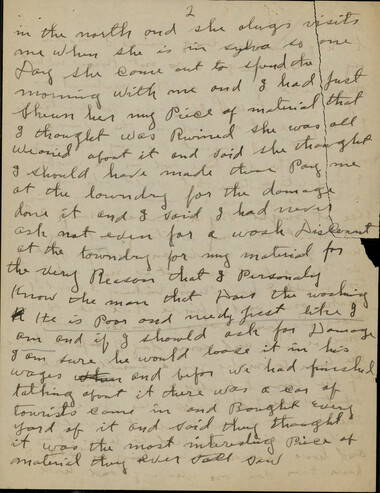 2
in the north and she alwgs visits
me when she is in sylva so one
Day she come out to spend the
morning with me and I had just
Shewn her my Piece of material that
I thought was Ruined she was all
weried about it and said she thought
I should have made them Pay me
at the loundry for the damage
done it and I said I had never
ask not even for a wash Discount
at the loundry for my material for
the very Reason that I Personaly
Know the man that Does the washing
He is Poor and needy just like I
am and if I should ask for Damage
I am sure he would loose it in his
wages and befor we had finished
talking about it there was a car of
tourists come in and Bought Every
yard of it and said they thought
it was the most interesting Piece of
material they Ever